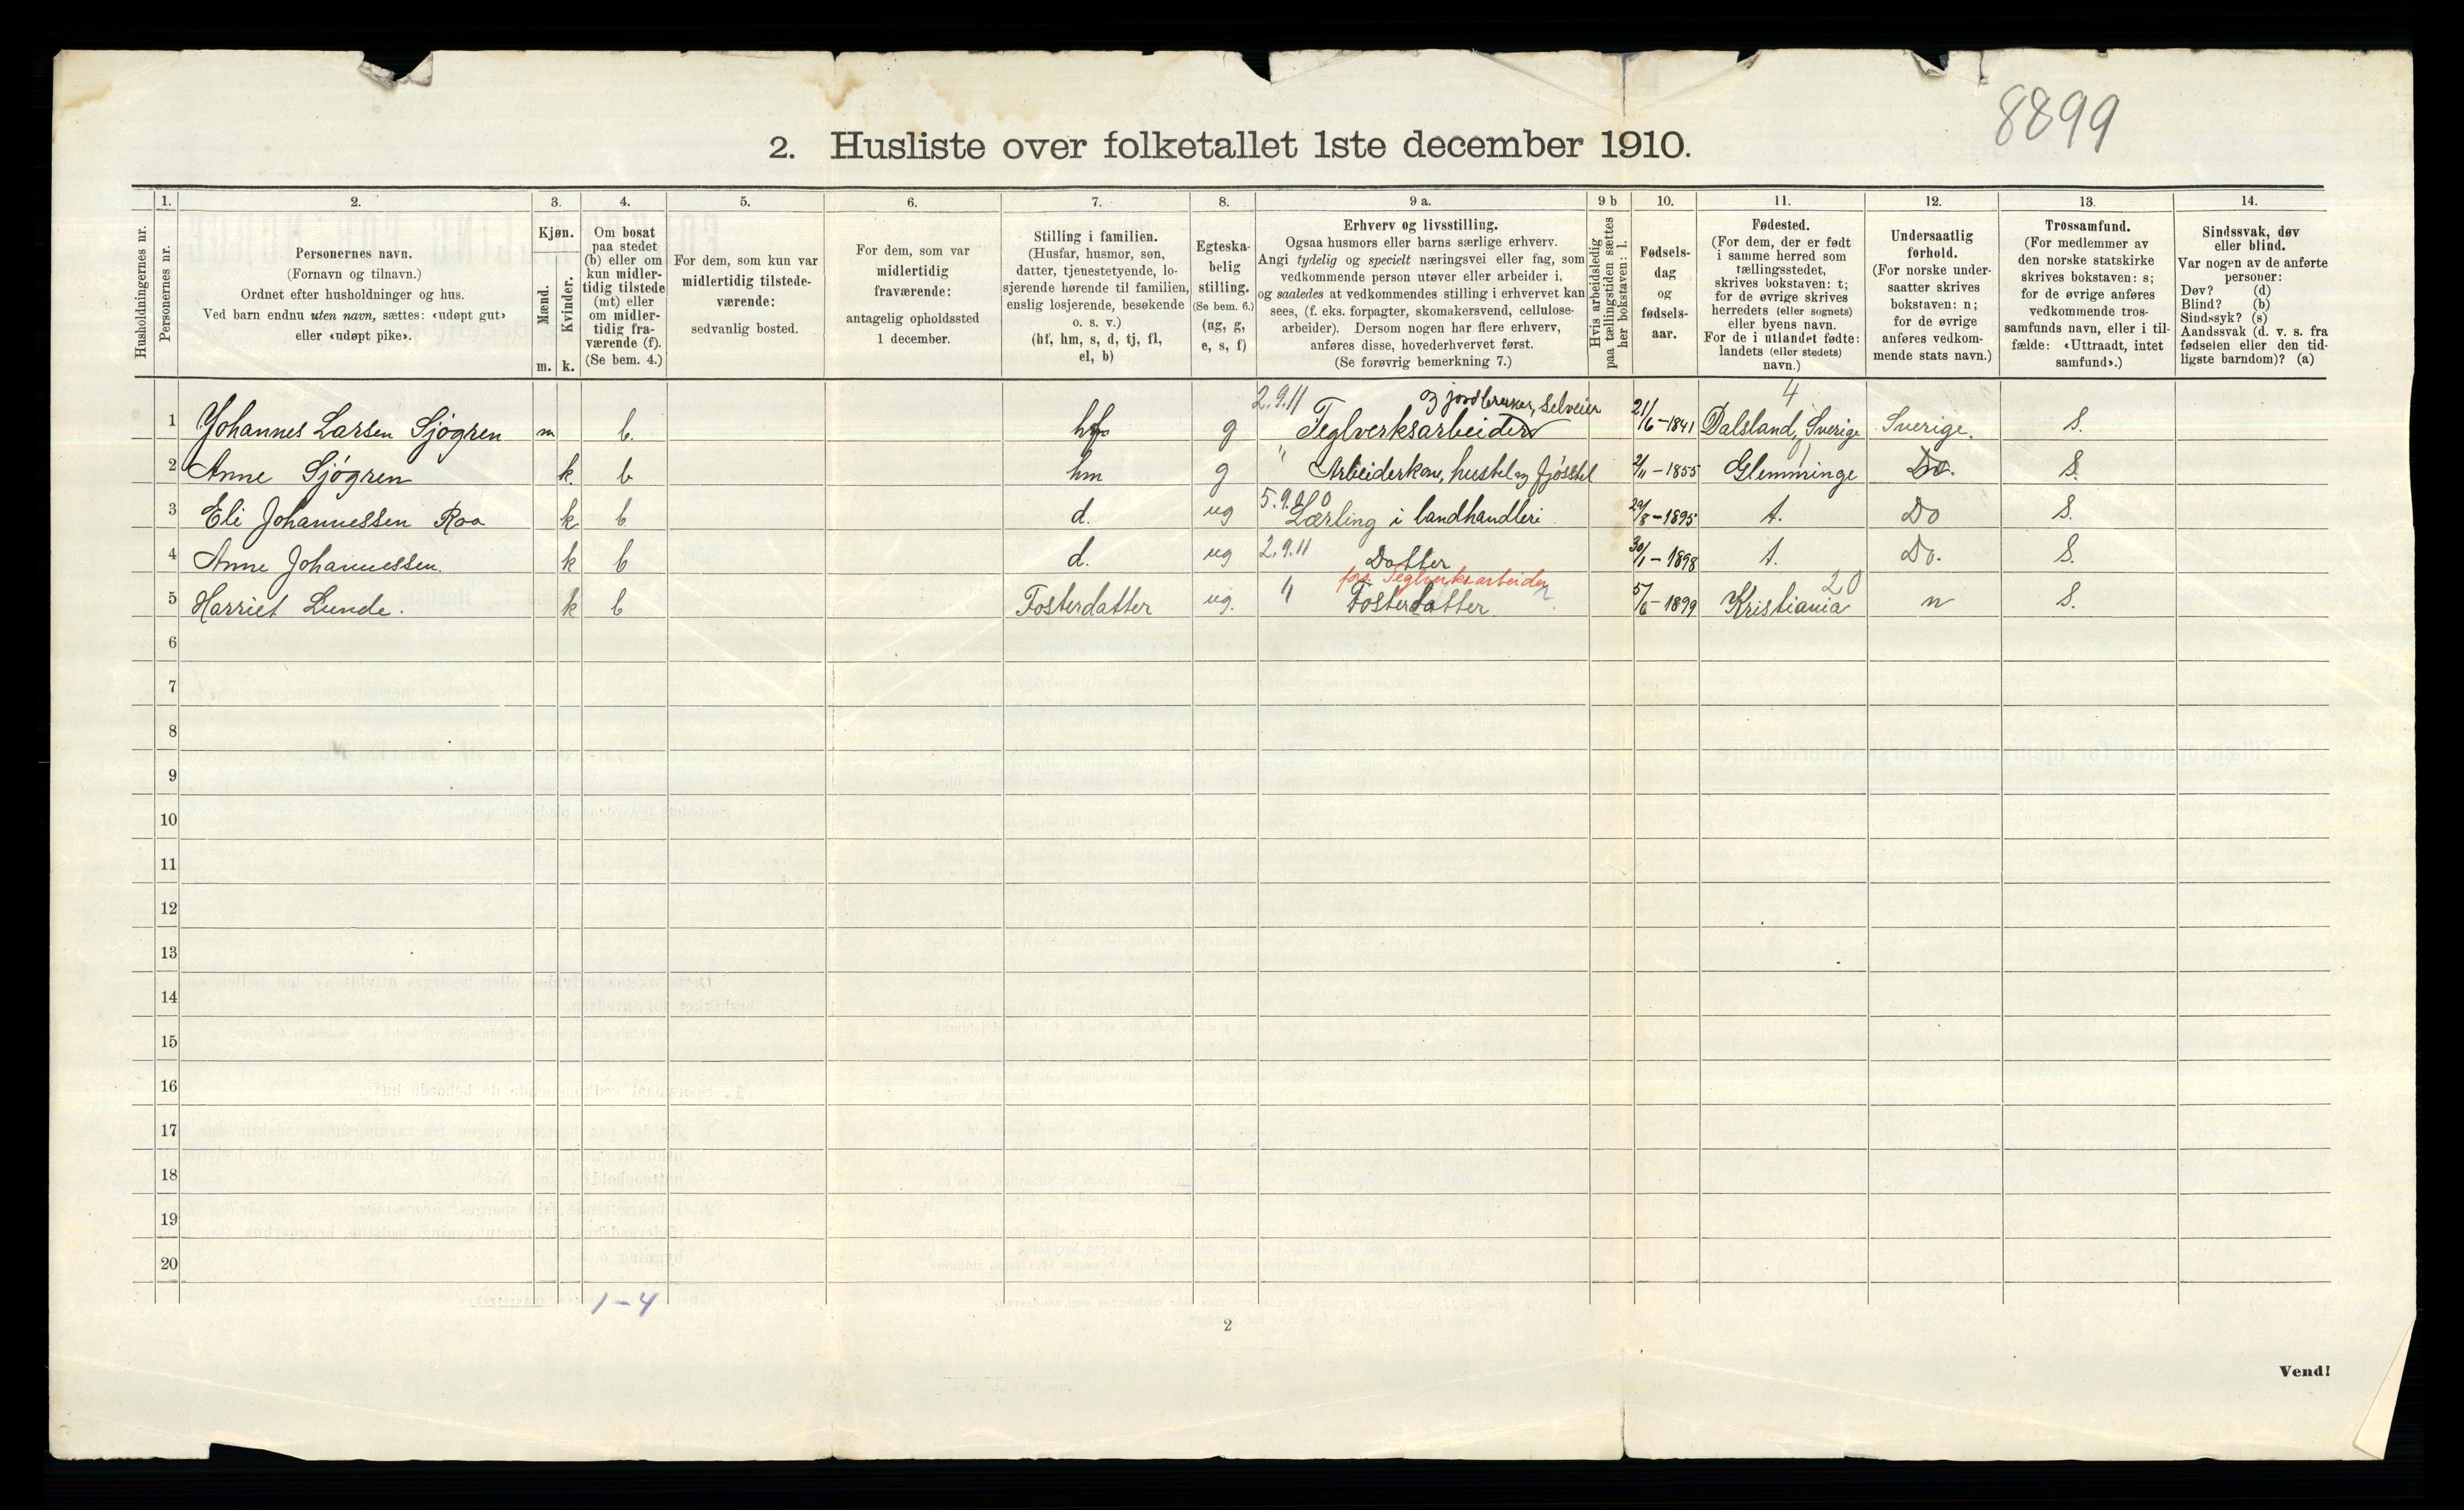 8899
2. Husliste over folketallet 1ste december 1910.
Husholdningernes nr.
1. Personernes nr.
2. Personernes navn.
(Fornavn og tilnavn.)
Ordnet efter husholdninger og hus.
Ved barn endnu uten navn, sættes: «udøpt gut»
eller «udøpt pike».
3. Kjøn.
Mænd. m.
Kvinder. k.
4. Om bosat
paa stedet
(b) eller om
kun midler-
tidig tilstede
(mt) eller
om midler-
tidig fra-
værende (f).
(Se bem. 4.)
5. For dem, som kun var
midlertidig tilstede-
værende:
sedvanlig bosted.
6. For dem, som var
midlertidig
fraværende:
antagelig opholdssted
1 december.
7. Stilling i familien.
(Husfar, husmor, søn,
datter, tjenestetyende, lo-
sjerende hørende til familien,
enslig losjerende, besøkende
o. s. v.)
(hf, hm, s, d, tj, fl,
el, b)
8. Egteska-
belig
stilling.
(Se bem. 6.)
(ug, g,
e, s, f)
9 a. Erhverv og livsstilling.
Ogsaa husmors eller barns særlige erhverv.
Angi tydelig og specielt næringsvei eller fag, som
vedkommende person utøver eller arbeider i,
og saaledes at vedkommendes stilling i erhvervet kan
sees, (f. eks. forpagter, skomakersvend, cellulose-
arbeider). Dersom nogen har flere erhverv,
anføres disse, hovederhvervet først.
(Se forøvrig bemerkning 7.)
9 b Hvis arbeidsledig
paa tællingstiden sættes
her bokstaven: l.
10. Fødsels-
dag
og
fødsels-
aar.
11. Fødested.
(For dem, der er født
i samme herred som
tællingsstedet,
skrives bokstaven: t;
for de øvrige skrives
herredets (eller sognets)
eller byens navn.
For de i utlandet fødte:
landets (eller stedets)
navn.)
12. Undersaatlig
forhold.
(For norske under-
saatter skrives
bokstaven: n;
for de øvrige
anføres vedkom-
mende stats navn.)
13. Trossamfund.
(For medlemmer av
den norske statskirke
skrives bokstaven: s;
for de øvrige anføres
vedkommende tros-
samfunds navn, eller i til-
fælde: «Uttraadt, intet
samfund».)
14. Sindssvak, døv
eller blind.
Var nogen av de anførte
personer:
Døv? (d)
Blind? (b)
Sindssyk? (s)
Aandssvak (d. v. s. fra
fødselen eller den tid-
ligste barndom)? (a)
2.9.11 og jordbruker, selveier 4
1 Johannes Larsen Sjøgren m b. hf g Teglverksarbeider 21/6-1841 Dalsland, Sverige Sverige. S.
2 Anne Sjøgren k. b hm g " Arbeiderkone, hustel og fjøsstel 2/11-1855 Glemminge Do. S.
3 Eli Johannessen Roa k b d. ug 5.9.00 Lærling i landhandleri. 29/8-1895 t. Do S.
4 Anne Johannessen. k b d. ug 2.9.11 Datter 30/1-1898 t. Do. S.
fors. Teglverksarbeider 20
5 Harriet Lunde. k b Fosterdatter ug. " Fosterdatter. 5/6-1899 Kristiania n S.
6
7
8
9
10
11
12
13
14
15
16
17
18
19
20
1-4
2
Vend!